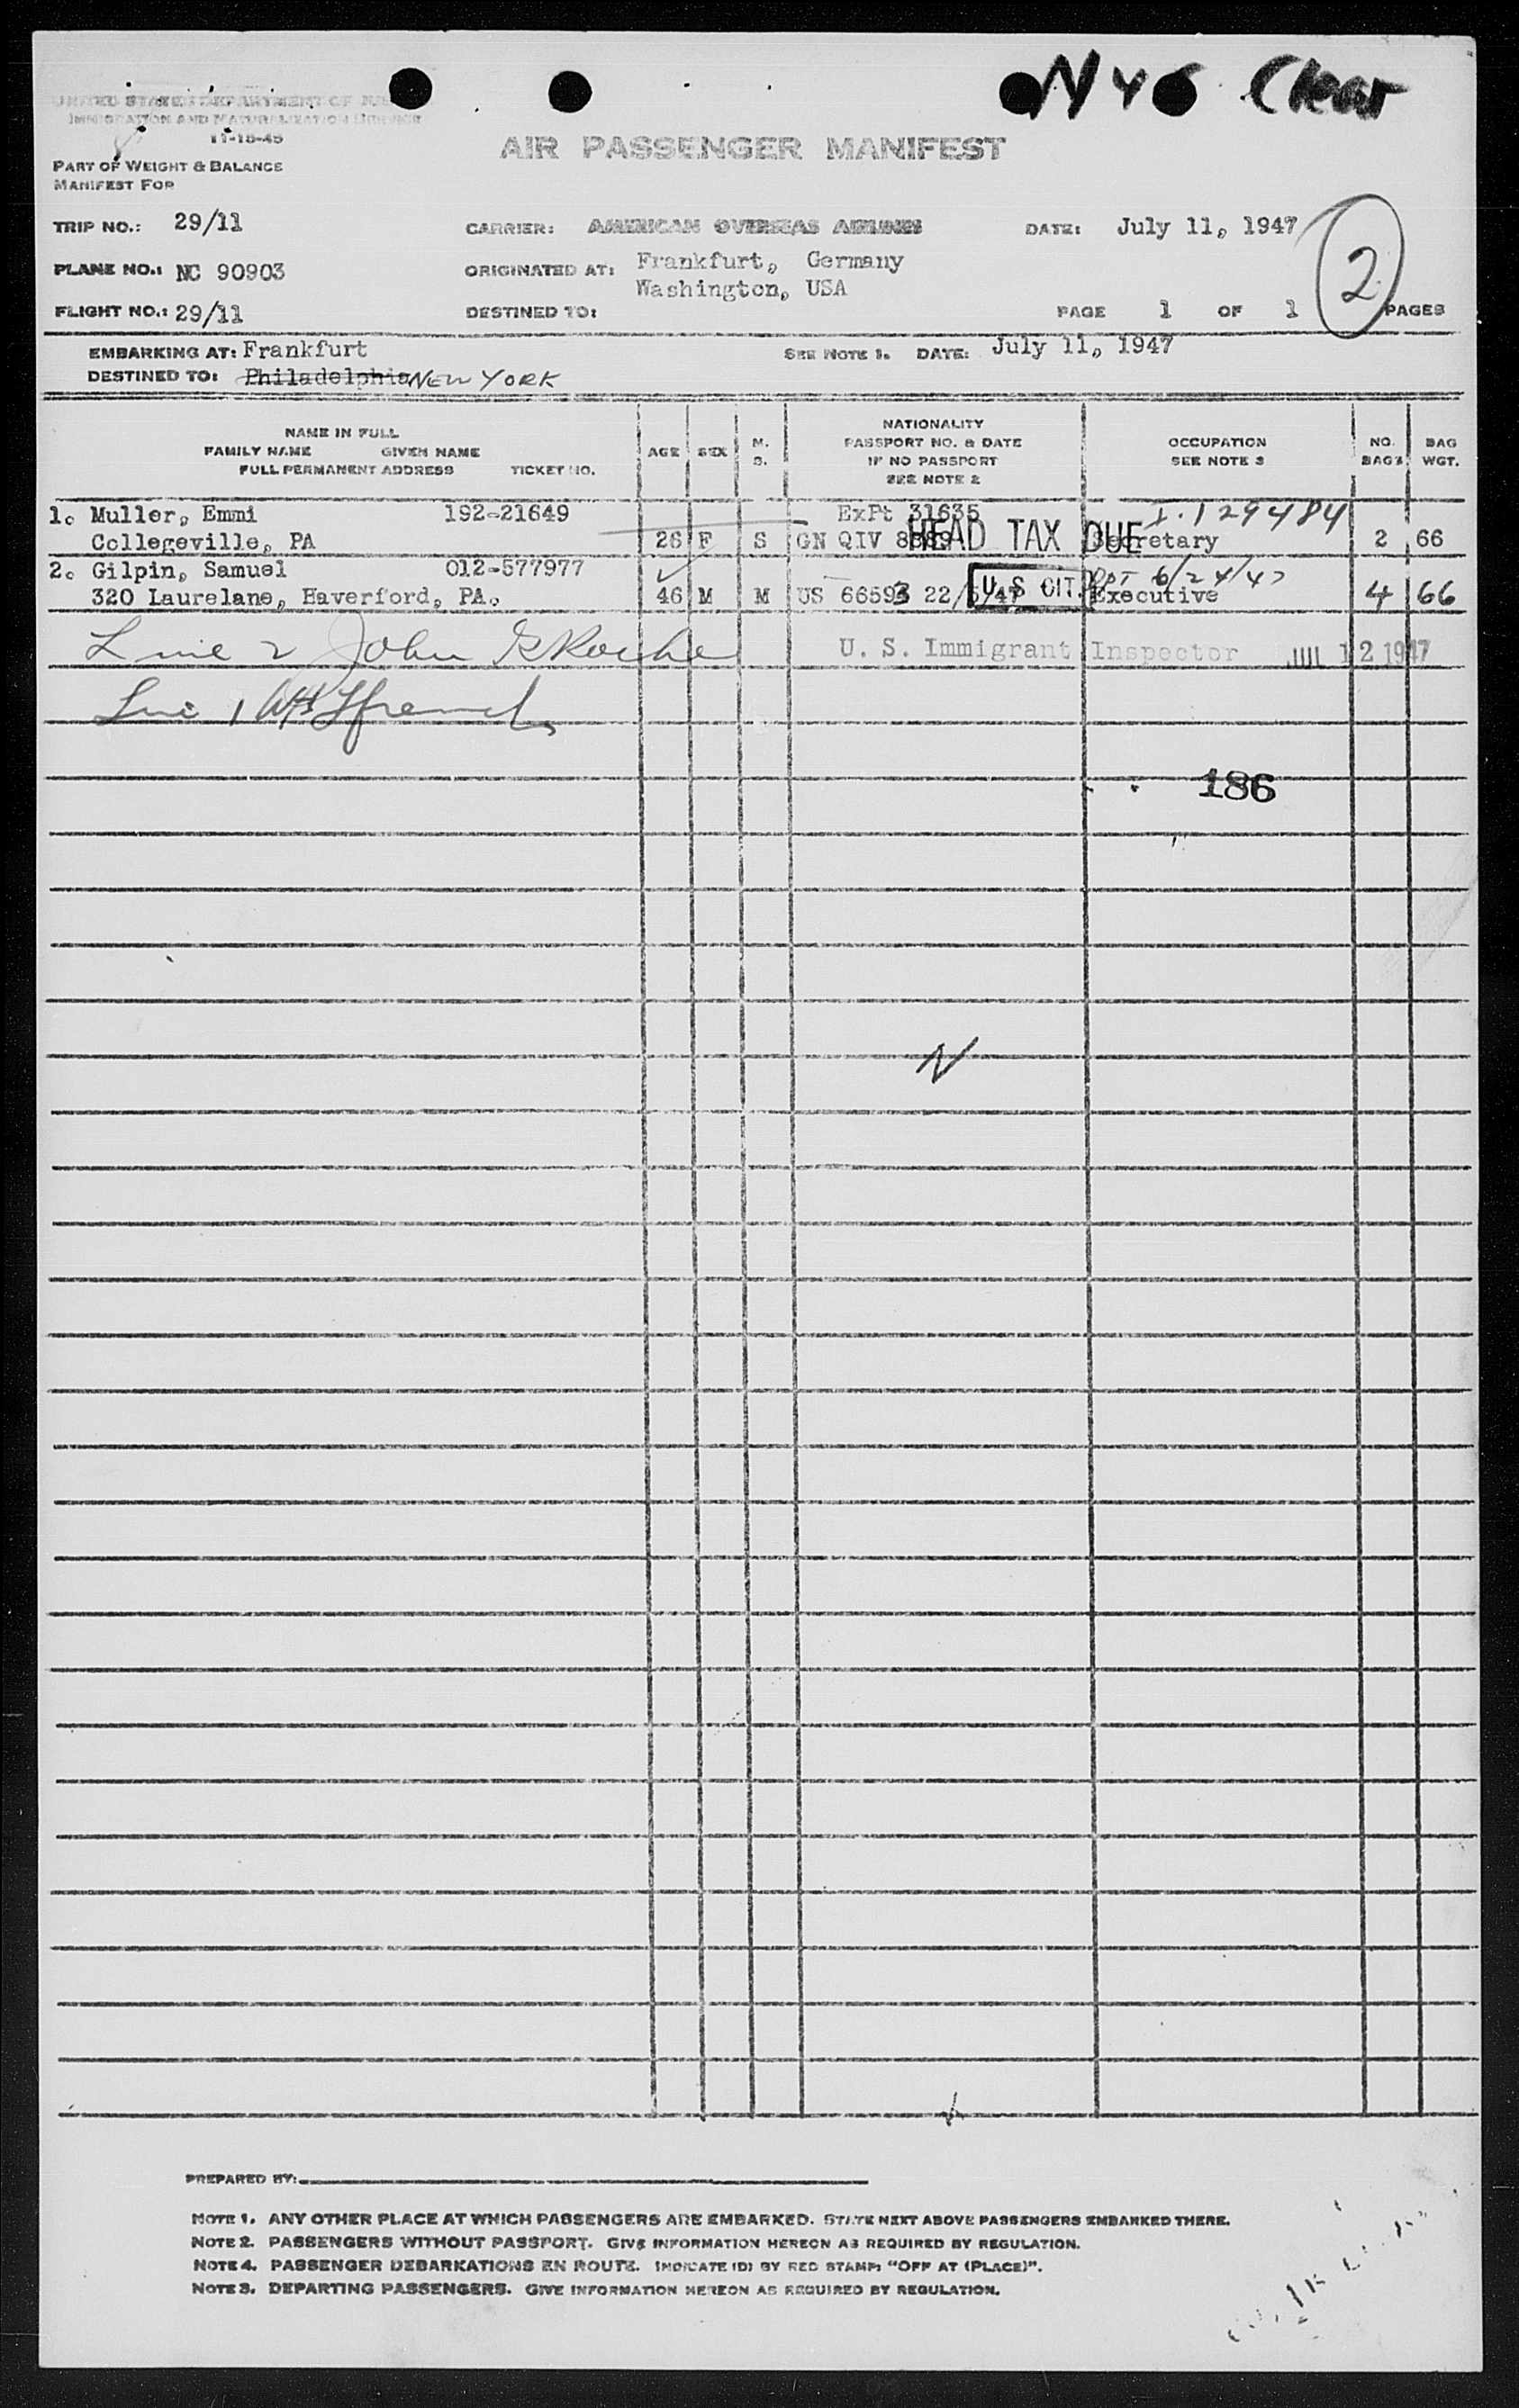 NYC Clear
UNITED STATES DEPARTMENT OF JUS
IMMIGRATION AND NATURALIZATION SERVICE
11-18-45
AIR PASSENGER MANIFEST
PART OF WEIGHT & BALANCE
MANIFEST FOR
TRIP NO.: 29/11 CARRIER: AMERICAN OVERSEAS AIRLINES DATE: July 11, 1947
PLANE NO.: NC 90903 ORIGINATED AT: Frankfurt, Germany
Washington, USA
2
FLIGHT NO.: 29/11 DESTINED TO: PAGE 1 OF 1 PAGES
EMBARKING AT: Frankfurt SEE NOTE 1. DATE: July 11, 1947
DESTINED TO: Philadelphia NEW YORK
NAME IN FULL
FAMILY NAME GIVEN NAME
FULL PERMANENT ADDRESS TICKET NO.
AGE SEX M.
S.
NATIONALITY
PASSPORT NO. & DATE
IF NO PASSPORT
SEE NOTE 2
OCCUPATION
SEE NOTE 3
NO.
BAG'S
BAG
WGT.
1. Muller, Emmi 192-21649 ExPt 31635 I-129484
Collegeville, PA 26 F S GN QIV HEAD TAX DUE Secretary 2 66
2. Gilpin, Samuel 012-577977 6/24/47
320 Laurelane, Haverford, PA. 46 M M US 66593 22/5/47 U. S. CIT. Executive 4 66
Line 2 John Roche U. S. Immigrant Inspector JUL 12 1947
Line 1
186
N
PREPARED BY:
NOTE 1. ANY OTHER PLACE AT WHICH PASSENGERS ARE EMBARKED. STATE NEXT ABOVE PASSENGERS EMBARKED THERE.
NOTE 2. PASSENGERS WITHOUT PASSPORT. GIVE INFORMATION HEREON AS REQUIRED BY REGULATION.
NOTE 4. PASSENGER DEBARKATIONS EN ROUTE. INDICATE (D) BY RED STAMP: "OFF AT (PLACE)".
NOTE 3. DEPARTING PASSENGERS. GIVE INFORMATION HEREON AS REQUIRED BY REGULATION.